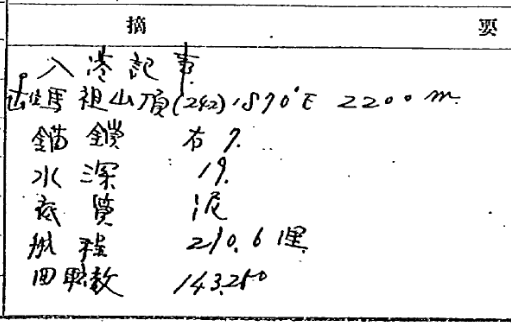 摘 要
入港記事
馬祖山頂(242) 2200m
錨鎖 右 7.
水深 19.
底質 泥
航程 210.6 浬
回転数 143.250